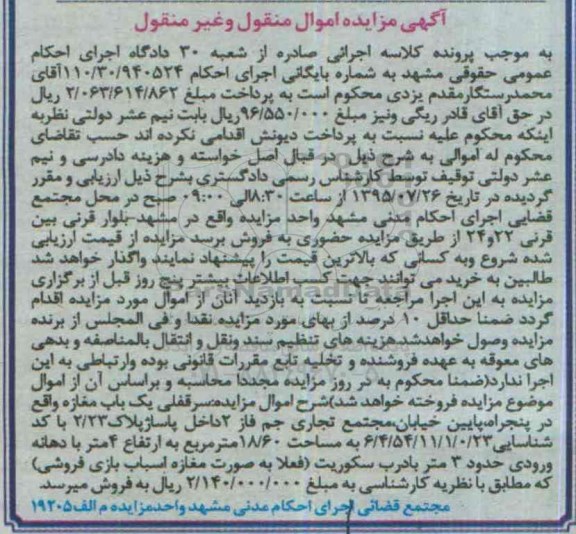 آگهی مزایده اموال منقول وغیر منقول
به موجب پرونده کلاسه اجرائی صادره از شعبه ۳۰ دادگاه اجرای احکام
عمومی حقوقی مشهد به شماره بایگانی اجرای احکام ۱۱۰/۳۰/۹۴۰۵۲۴آقای
محمدرستگارمقدم یزدی محکوم است به پرداخت مبلغ ۲/۰۶۳/۶۱۴/۸۶۲ ریال
در حق آقای قادر ریگی ونیز مبلغ ۹۶/۵۵۰/۰۰۰ریال بابت نیم عشر دولتی نظربه
اینکه محکوم علیه نسبت به پرداخت دیونش اقدامی نکرده اند حسب تقاضای
محکوم له اموالی به شرح ذیل در قبال اصل خواسته و هزینه دادرسی و نیم
عشر دولتی توقیف توسط کارشناس رسمی دادگستری بشرح ذیل ارزیابی و مقرر
گردیده در تاریخ ۱۳۹۵/۰۷/۲۶ از ساعت ۸:۳۰الی ۰۹:۰۰ صبح در محل مجتمع
قضایی اجرای احکام مدنی مشهد واحد مزایده واقع در مشهد-بلوار قرنی بین
قرنی ۲۲و۲۴ از طریق مزایده حضوری به فروش برسد مزایده از قیمت ارزیابی
شده شروع وبه کسانی که بالاترین قیمت را پیشنهاد نمایند واگذار خواهد شد
طالبین به خرید می توانند جهت کسب اطلاعات بیشتر پنج روز قبل از برگزاری
مزایده به این اجرا مراجعه تا نسبت به بازدید آنان از اموال مورد مزایده اقدام
گردد ضمنا حداقل ۱۰ درصد از بهای مورد مزایده نقدا و فی المجلس از برنده
مزایده وصول خواهدشدهزینه های تنظیم سند ونقل و انتقال بالمناصفه و بدهی
های معوقه به عهده فروشنده و تخلیه تابع مقررات قانونی بوده وارتباطی به این
اجرا ندارد(ضمنا محکوم به در روز مزایده مجددا محاسبه و براساس آن از اموال
موضوع مزایده فروخته خواهد شد)شرح اموال مزایده:سرقفلی یک باب مغازه واقع
در پنجراه،پایین خیابان،مجتمع تجاری جم فاز ۲داخل پاساژپلاک۲/۲۳ با کد
شناسایی۶/۴/۵۴/۱۱/۱/۰/۲۳ به مساحت ۱۸/۶۰مترمربع به ارتفاع ۴متر با دهانه
ورودی حدود ۳ متر بادرب سکوریت (فعلا به صورت مغازه اسباب بازی فروشی)
که مطابق با نظریه کارشناسی به مبلغ ۲/۱۴۰/۰۰۰/۰۰۰ ریال به فروش میرسد.
مجتمع قضائی اجرای احکام مدنی مشهد واحدمزایده م الف۱۹۲۰۵